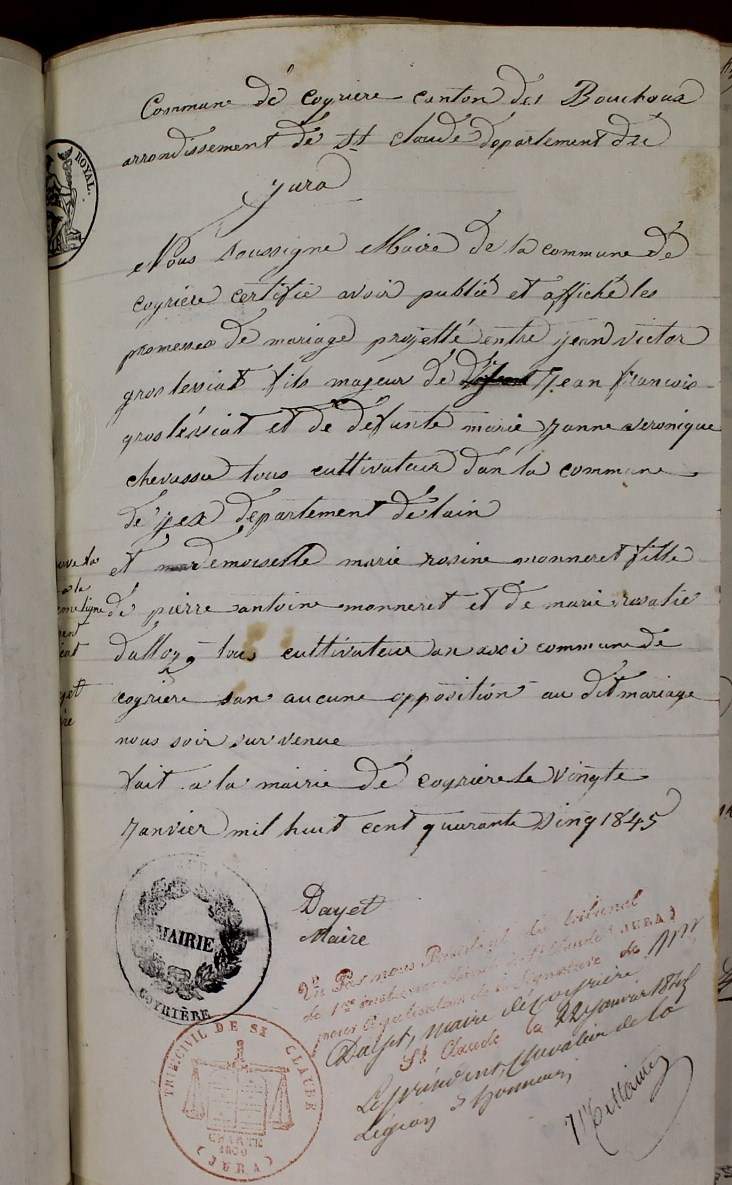 Commune de Coyriere canton des Bouchoux
arrondissement de St Claude departement du
Jura
ROYAL.
Nous soussigné Maire de la commune de
coyriere certifie avoir publié et affiché les
promesses de mariage projetté entre jean victor
groslessiat fils majeur de Jean francois
grosléssiat et de défunte marie Janne veronique
chevassu tous cultivateur dan la commune
de jex departement de lain
et demoiselle marie rosine monneret fille
de pierre antoine monneret et de marie rosalie
dalloz tous cultivateur an avoi commune de
coyriere san aucune opposition au dit mariage
nous soir survenue
fait a la mairie de coyriere le vingte
Janvier mil huit cent quarante sinq 1845
Dayet
Maire
MAIRIE
COYRIÈRE
Vu Par nous President du tribunal
de 1re instance de St Claude (JURA)
pour légalisation de la Signature de Mr
Dayet, maire de Coyriere
St Claude le 22 janvier 1845
Le président, Chevalier de la
Légion d'honneur,
TRIB. CIVIL DE St CLAUDE
CHARTE
1830
(JURA)